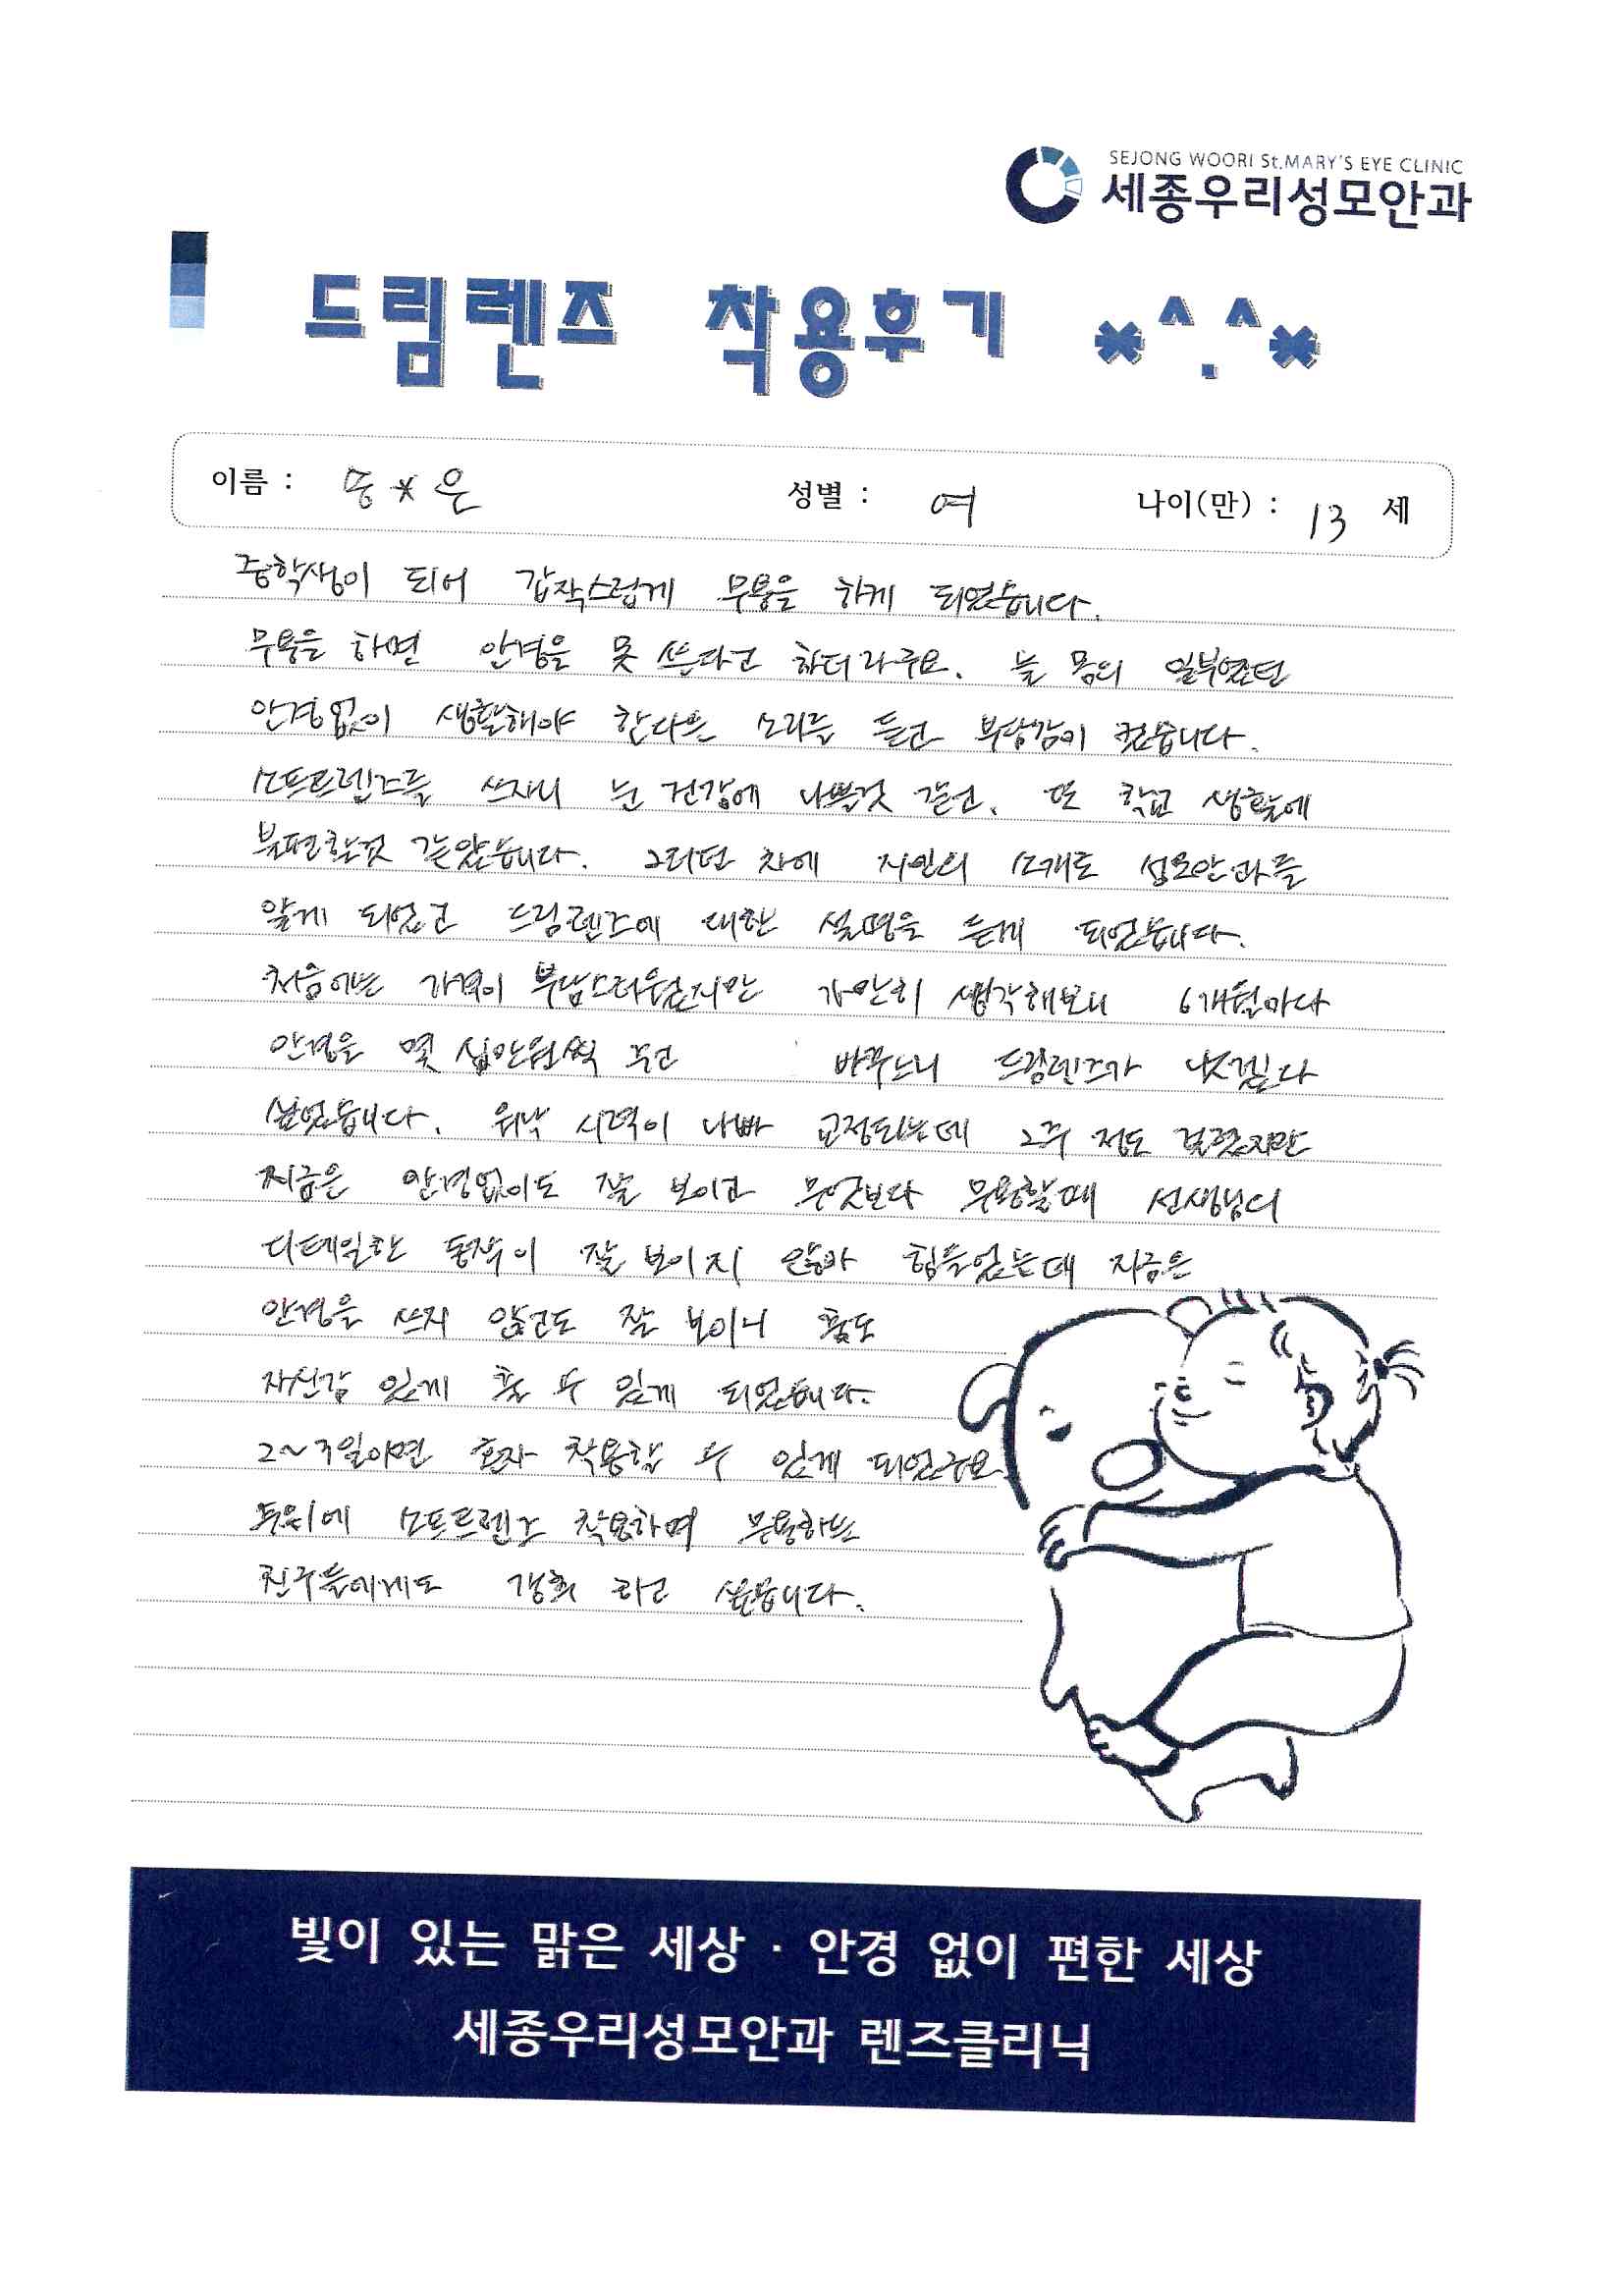 SEJONG WOORI St.MARY'S EYE CLINIC
세종우리성모안과
드림렌즈 착용후기 *^.^*
이름 : 동*은 성별 : 여 나이(만) : 13 세
중학생이 되어 갑작스럽게 무용을 하게 되었습니다.
무용을 하면 안경을 못 쓴다고 하더라구요. 늘 몸의 일부였던
안경없이 생활해야 한다는 소리를 듣고 부담감이 컸습니다.
소프트렌즈를 쓰자니 눈 건강에 나쁠것 같고, 또 학교 생활에
불편할것 같았습니다. 그러던 차에 지인의 소개로 성모안과를
알게 되었고 드림렌즈에 대한 설명을 듣게 되었습니다.
처음에는 가격이 부담스러웠지만 가만히 생각해보니 6개월마다
안경을 몇 십만원씩 주고 바꾸느니 드림렌즈가 낫겠다
싶었습니다. 워낙 시력이 나빠 교정되는데 2주 정도 걸렸지만
지금은 안경없이도 잘 보이고 무엇보다 무용할때 선생님의
디테일한 동작이 잘 보이지 않아 힘들었는데 지금은
안경을 쓰지 않고도 잘 보이니 춤도
자신감 있게 출 수 있게 되었습니다.
2~3일이면 혼자 착용할 수 있게 되었구요
주위에 소프트렌즈 착용하며 무용하는
친구들에게도 강추 하고 싶습니다.
빛이 있는 맑은 세상 · 안경 없이 편한 세상
세종우리성모안과 렌즈클리닉